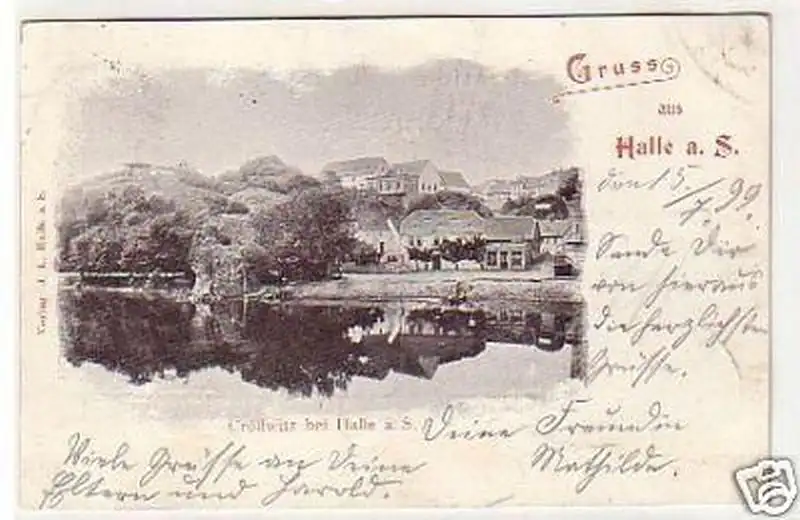 Gruss
aus
Halle a. S.
den 15./7. 99.
Sende Dir
von hieraus
die herzlichsten
Grüsse.
Cröllwitz bei Halle a. S.
Deine Freundin
Mathilde.
Viele Grüsse an Deine
Eltern und Harold.
Verlag
Halle a. S.
ebay